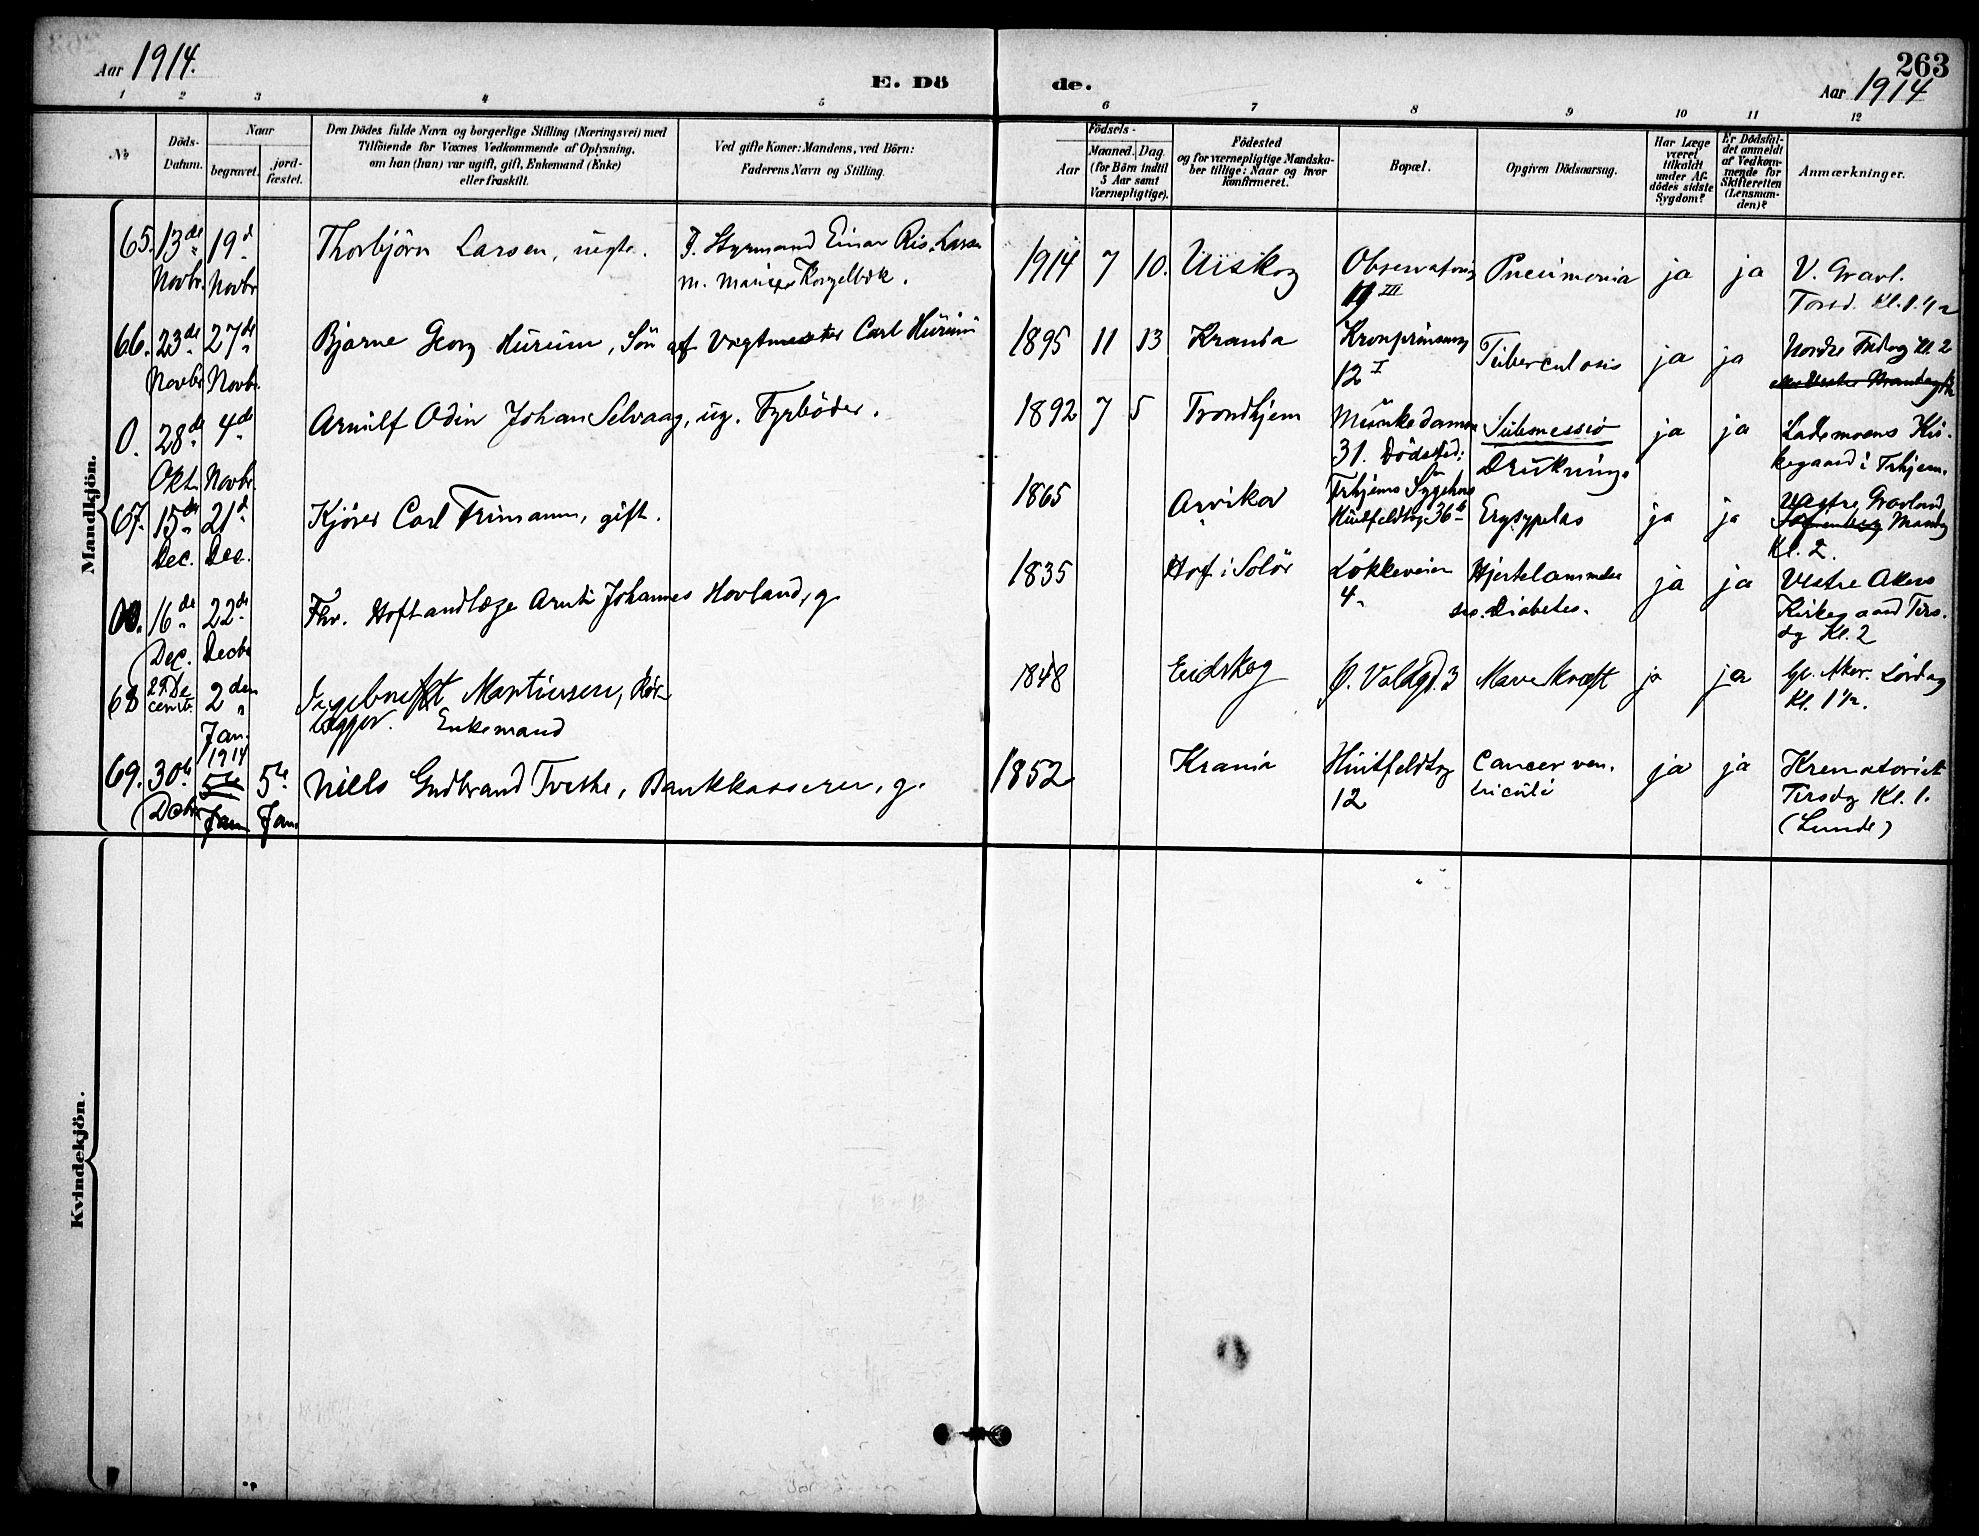 263
Aar 1914.
E. Dö de.
Aar 1914
1 2 3 4 5 6 7 8 9 10 11 12
No
Döds-
Datum.
Naar
begravet.
jord-
fæstet.
Den Dödes fulde Navn og borgerlige Stilling (Næringsvei) med
Tilföiende for Voxnes Vedkommende af Oplysning,
om han (hun) var ugift, gift, Enkemand (Enke)
eller fraskilt.
Ved gifte Koner: Mandens, ved Börn:
Faderens Navn og Stilling.
Födsels-
Aar
Maaned. Dag.
(for Börn indtil
5 Aar samt
Værnepligtige).
Födested
og for værnepligtige Mandska-
ber tillige: Naar og hvor
konfirmeret.
Bopæl.
Opgiven Dödsaarsag.
Har Læge
været
tilkaldt
under Af-
dödes sidste
Sygdom?
Er Dödsfal-
det anmeldt
af Vedkom-
mende for
Skifteretten
(Lensman-
den)?
Anmærkninger.
Mandkjön.
65. 13de Novbr. 19d Novbr Thorbjörn Larsen, uegte. F. Styrmand Einar Riis-Larsen
M. 1914 7 10. Ullskog Observatorieg III Pneumonia ja ja V. Gravl.
Torsd. Kl. 1 1/2
66. 23de Novbr 27de Novbr. Bjarne Georg Hurum, Sön af Vægtmester Carl Hurum 1895 11 13 Krania Kronprinsensg
12 I Tuberculosis ja ja Nordre Fredag Kl. 2
0. 28de Okt. 4de Novbr. Arnulf Odin Johan Selvaag, ug. Fyrböder. 1892 7 5 Trondhjem Munkedamsv
31. Dödssted: Trhjems Sygehus Submessio
Drukning. ja ja Lademoens Kir-
kegaard i Trhjem.
67. 15de Dec. 21d Dec. Kjörer Carl Frimann, gift. 1865 Arvika Huitfeldtsg 36 b Erysypelas ja ja Vestre Gravlund
Mandag
Kl. 2.
00. 16de Dec. 22de Decbr Fhv. Hoftandlæge Arnt Johannes Hovland, g 1835 Hof i Solör Lökkeveien
4. Hjertelammelse
Diabetes. ja ja Vestre Akers
Kirkegaard Tirs-
dg Kl. 2
68 27 De
cembr. 2den Jan.
1914 Ingebret Martinsen, Rör-
lægger. Enkemand 1848 Eidskog Ø. Voldgd. 3 Mavekræft ja ja Gl. Aker. Lördag
Kl. 1 1/2.
69. 30te Decbr 5te Jan 5te Jan Niels Gudbrand Tvethe, Bankkasserer, g. 1852 Krania Huitfeldtsg
12 Cancer ven-
triculi ja ja Krematoriet
Tirsdg Kl. 1.
(Lunde)
Kvindekjön.